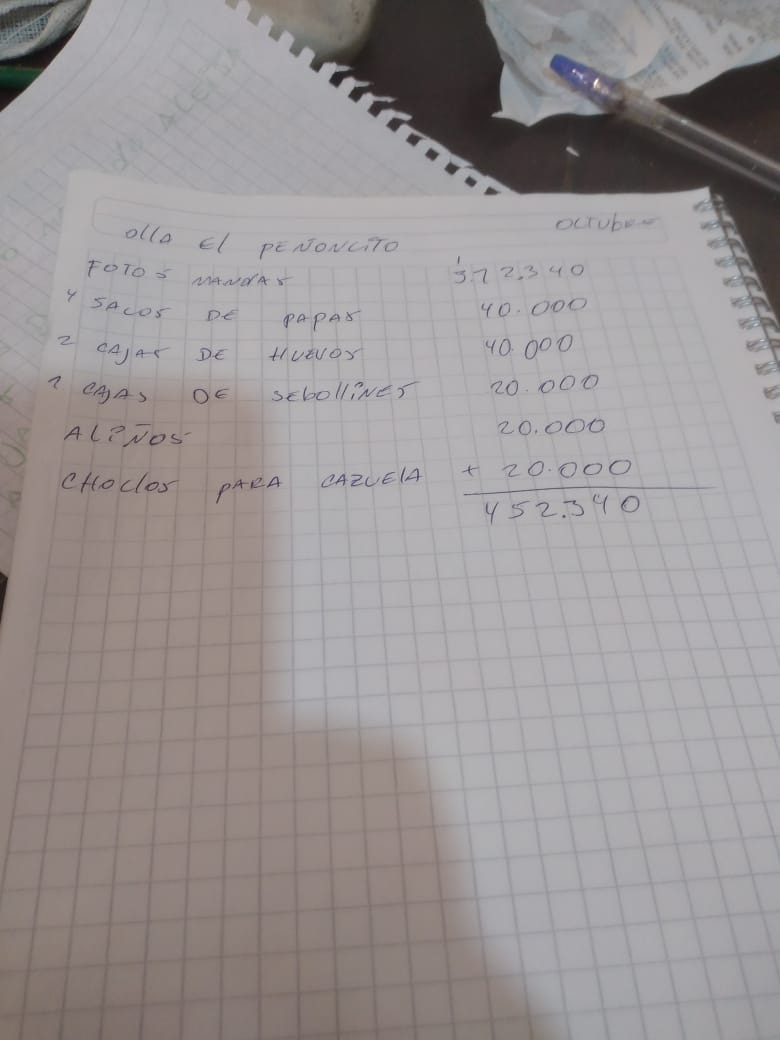 Olla El PEÑONCITO OCTUBRE
FOTOS MANDAS 312.340
4 SACOS DE PAPAS 40.000
2 CAJAS DE HUEVOS 40.000
1 CAJAS DE SEBOLLINES 20.000
ALIÑOS 20.000
CHOCLOS PARA CAZUELA + 20.000
452.340